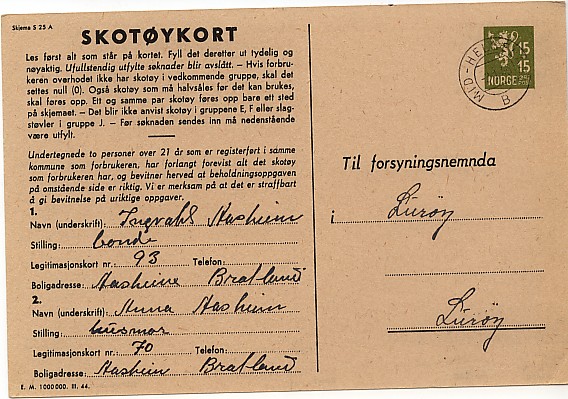 Skjema S 25 A
SKOTØYKORT
Les først alt som står på kortet. Fyll det deretter ut tydelig og
nøyaktig. Ufullstendig utfylte søknader blir avslått. – Hvis forbru-
keren overhodet ikke har skotøy i vedkommende gruppe, skal det
settes null (0). Også skotøy som må halvsåles før det kan brukes,
skal føres opp. Ett og samme par skotøy føres opp bare ett sted
på skjemaet. – Det blir ikke anvist skotøy i gruppene E, F eller slag-
støvler i gruppe J. – Før søknaden sendes inn må nedenstående
være utfylt.
Undertegnede to personer over 21 år som er registerført i samme
kommune som forbrukeren, har forlangt forevist alt det skotøy
som forbrukeren har, og bevitner herved at beholdningsoppgaven
på omstående side er riktig. Vi er merksam på at det er straffbart
å gi bevitnelse på uriktige oppgaver.
1.
Navn (underskrift): Ingvald Aasheim
Stilling: bonde
Legitimasjonskort nr. 93 Telefon:
Boligadresse: Aasheim Bratland
2.
Navn (underskrift): Anna Aasheim
Stilling: husmor
Legitimasjonskort nr. 70 Telefon:
Boligadresse: Aasheim Bratland
E. M. 1000000. III. 44.
15
15
NORGE
MID-HE
B
Til forsyningsnemnda
i Lurøy
Lurøy